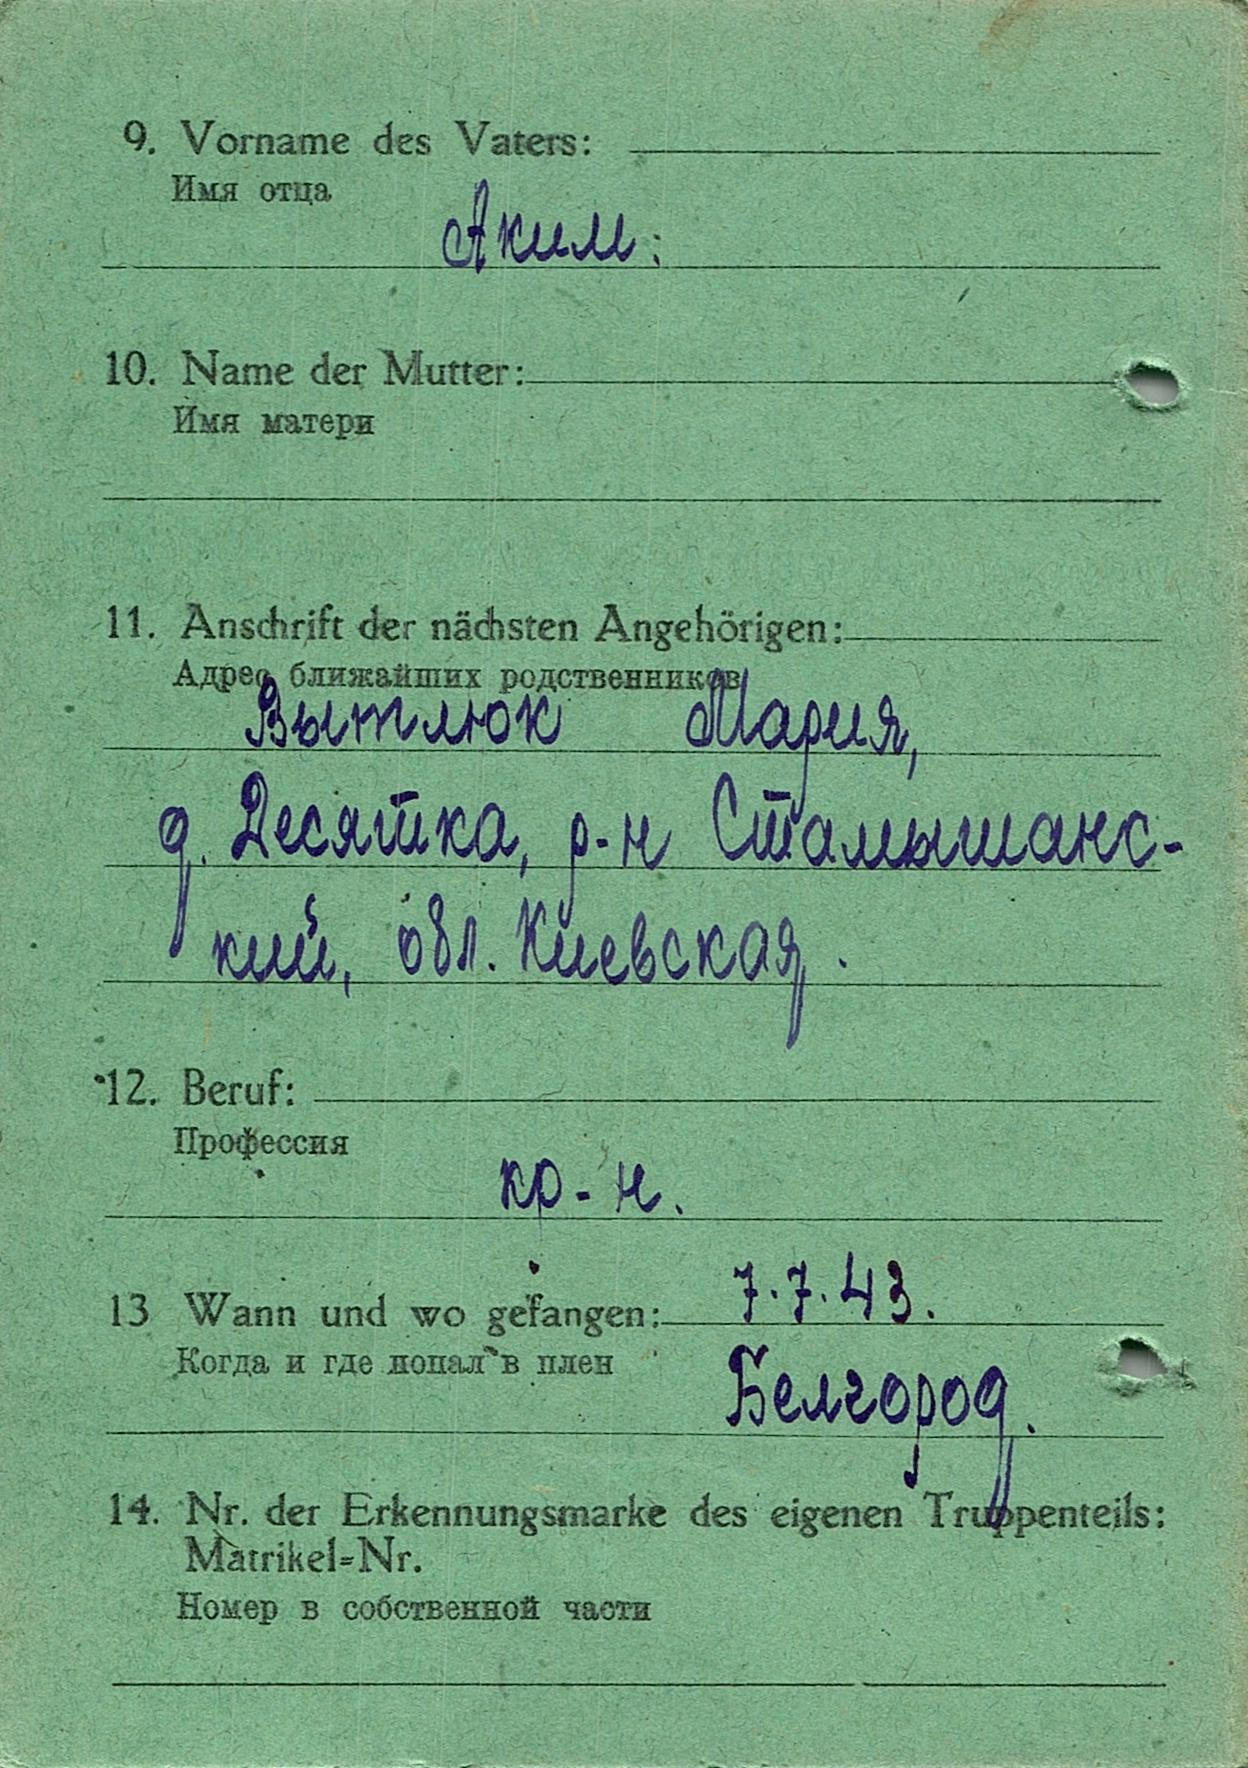 9. Vorname des Vaters:
Имя отца
Аким:
10. Name der Mutter:
Имя матери
11. Anschrift der nächsten Angehörigen:
Адрес ближайших родственников
Вытлюк Мария,
д. Десятка, р-н Стамышанс-
кий, обл. Киевская.
12. Beruf:
Профессия
кр-н.
7.7.43.
13 Wann und wo gefangen:
Когда и где попал в плен
Белгород.
14. Nr. der Erkennungsmarke des eigenen Truppenteils:
Matrikel=Nr.
Номер в собственной части